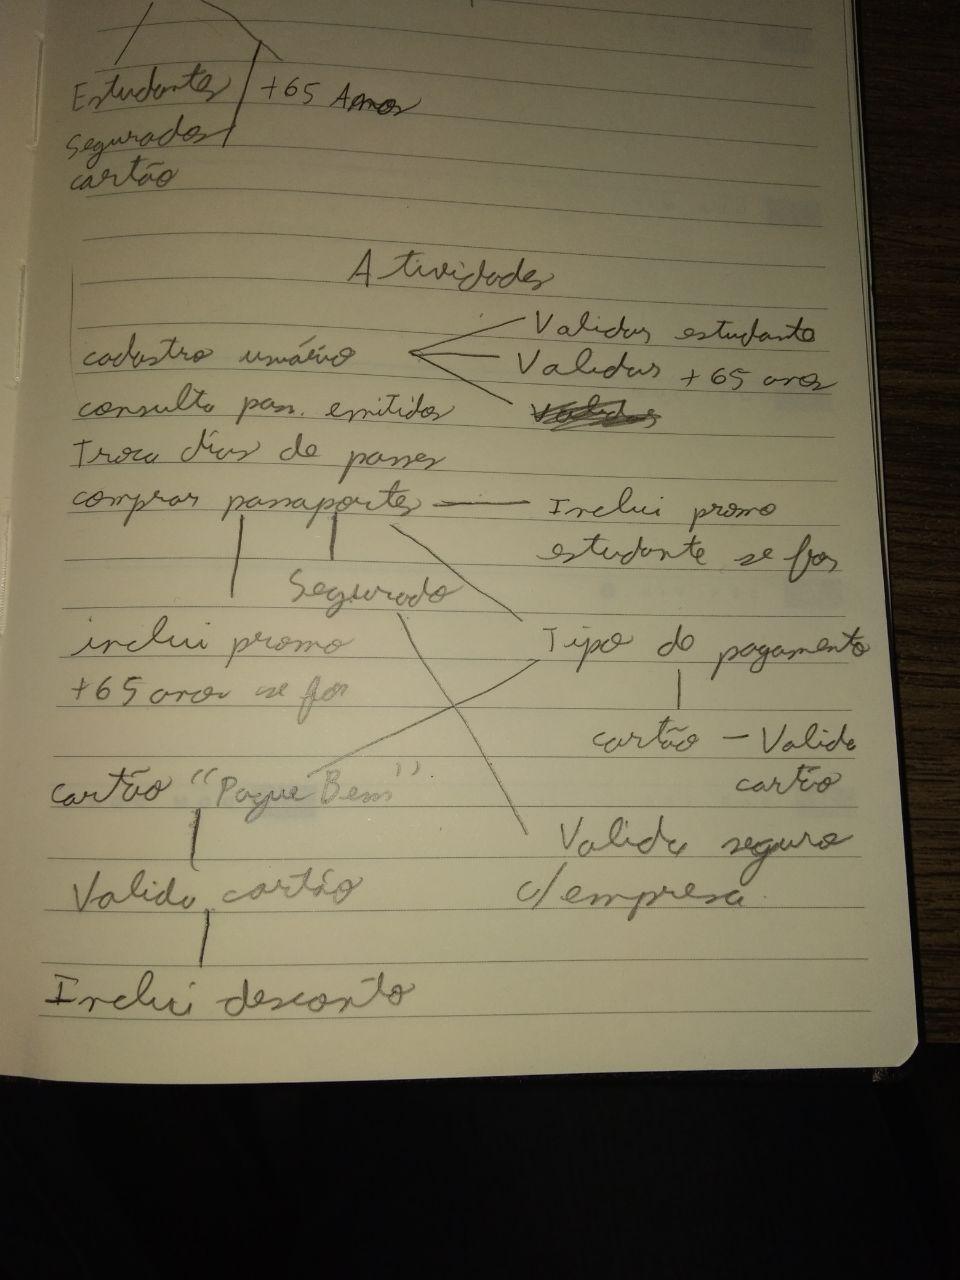 Estudantes +65 Anos
Segurados
cartão
Atividades
Validar estudante
cadastro usuário
Validar +65 anos
consulta pas. emitidos
Troca dias de passes
comprar passaportes — Inclui promo
estudante se for
Segurado
inclui promo
Tipo de pagamento
+65 anos se for
cartão — Valida
cartão
cartão "Pague Bem"
Valida seguro
c/ empresa
Valida cartão
Inclui desconto